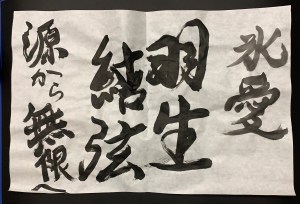 氷愛
羽生
結弦
源から無限へ